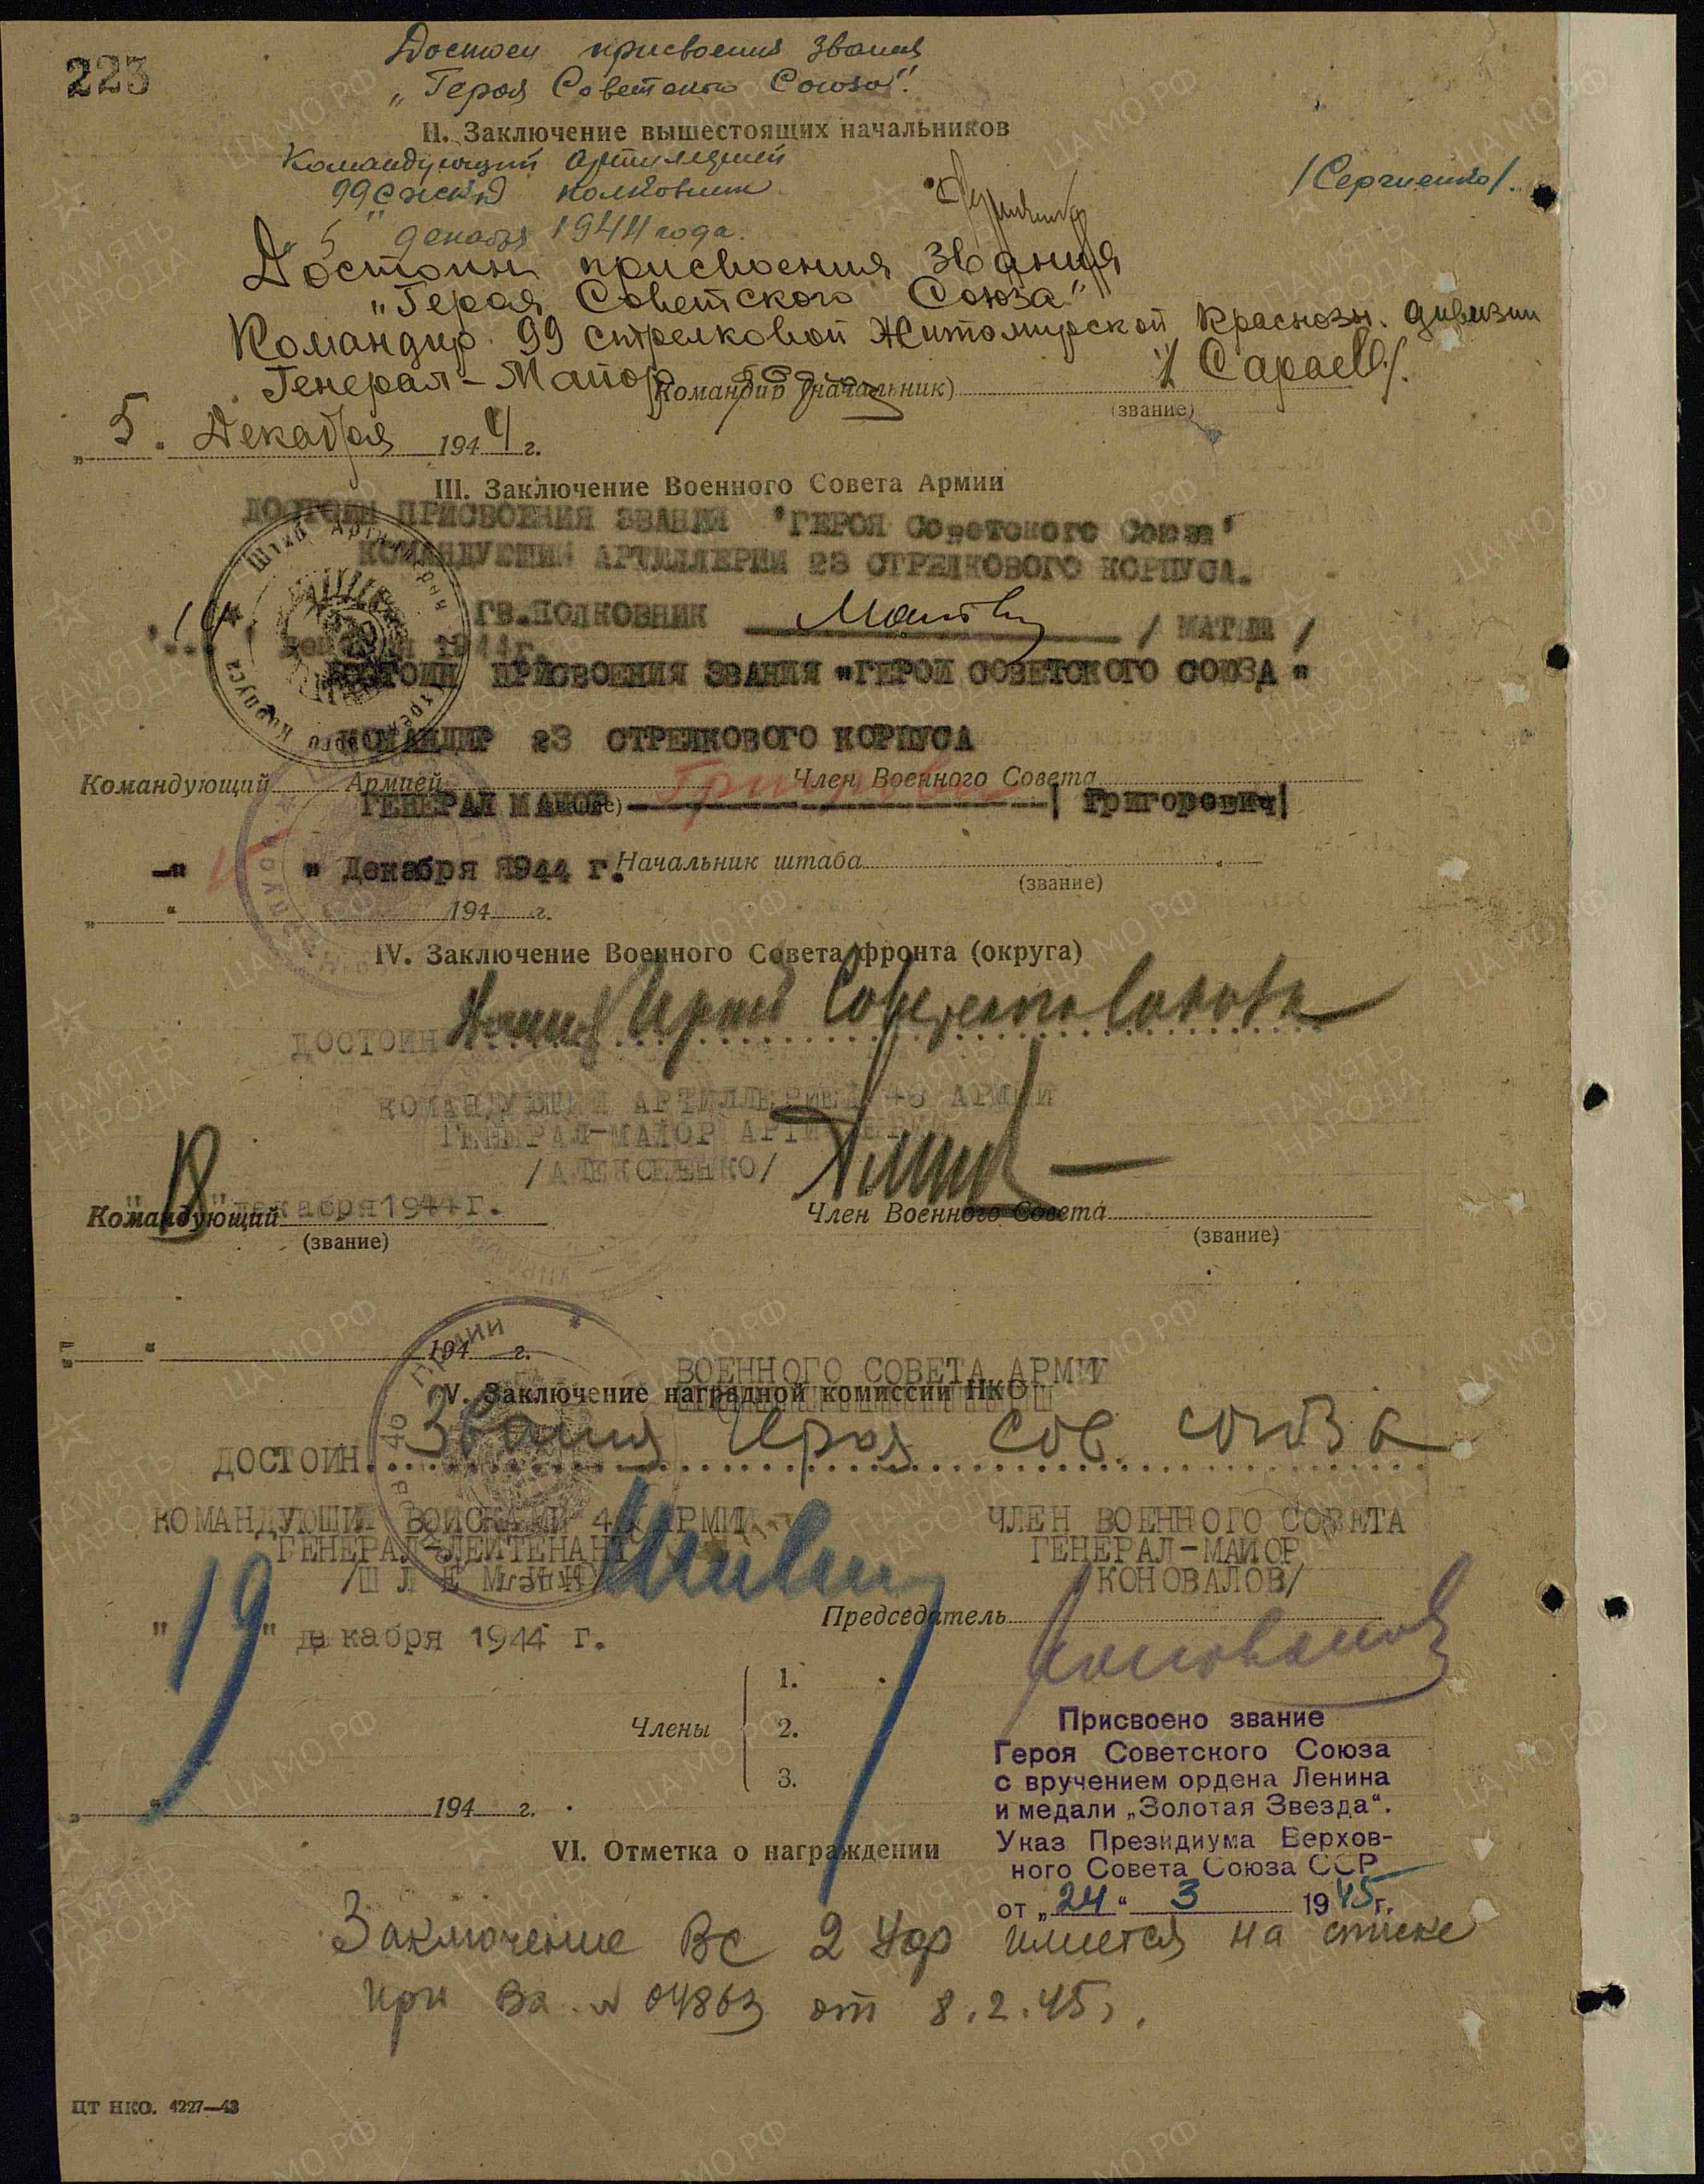 223
Достоен присвоения звания
„Героя Советского Союза".
II. Заключение вышестоящих начальников
Командующий Артиллерией
99 сжкд полковник /Сергиенко/.
„5" декабря 1944 года.
Достоин присвоения звания
„Героя Советского Союза"
Командир 99 стрелковой Житомирской Краснозн. дивизии
Генерал-Майор /Сараев/.
Командир (начальник)
(звание)
„5. Декабря 1944 г.
III. Заключение Военного Совета Армии
ДОСТОИН ПРИСВОЕНИЯ ЗВАНИЯ "ГЕРОЯ Советского Союза"
КОМАНДУЮЩИЙ АРТИЛЛЕРИИ 23 СТРЕЛКОВОГО КОРПУСА.
ГВ.ПОЛКОВНИК / /
декабря 1944г.
ДОСТОИН ПРИСВОЕНИЯ ЗВАНИЯ "ГЕРОЙ СОВЕТСКОГО СОЮЗА"
КОМАНДИР 23 СТРЕЛКОВОГО КОРПУСА
Командующий Армией Член Военного Совета
ГЕНЕРАЛ МАЙОР | Григорович|
" Декабря 1944 г. Начальник штаба
(звание)
„ " 194 г.
IV. Заключение Военного Совета фронта (округа)
ДОСТОИН Героя Советского Союза
КОМАНДУЮЩИЙ АРТИЛЛЕРИЕЙ 46 АРМИИ
ГЕНЕРАЛ-МАЙОР АРТИЛЛЕРИИ
/АЛЕКСЕЕНКО/
" " декабря 1944 г.
Командующий Член Военного Совета
(звание) (звание)
„ " 194 г.
ВОЕННОГО СОВЕТА АРМИИ
V. Заключение наградной комиссии НКО
ДОСТОИН Звания Героя Сов. Союза
КОМАНДУЮЩИЙ ВОЙСКАМИ 46 АРМИИ ЧЛЕН ВОЕННОГО СОВЕТА
ГЕНЕРАЛ-ЛЕЙТЕНАНТ ГЕНЕРАЛ-МАЙОР
/ШЛЕМИН/ /КОНОВАЛОВ/
Председатель
"19" декабря 1944 г.
1.
Члены 2.
3.
„ " 194 г.
Присвоено звание
Героя Советского Союза
с вручением ордена Ленина
и медали „Золотая Звезда".
Указ Президиума Верхов-
ного Совета Союза ССР
от „24" 3 1945 г.
VI. Отметка о награждении
Заключение ВС 2 Укр имеется на списке
при Вх. № 04863 от 8.2.45г.
ЦТ НКО. 4227—43